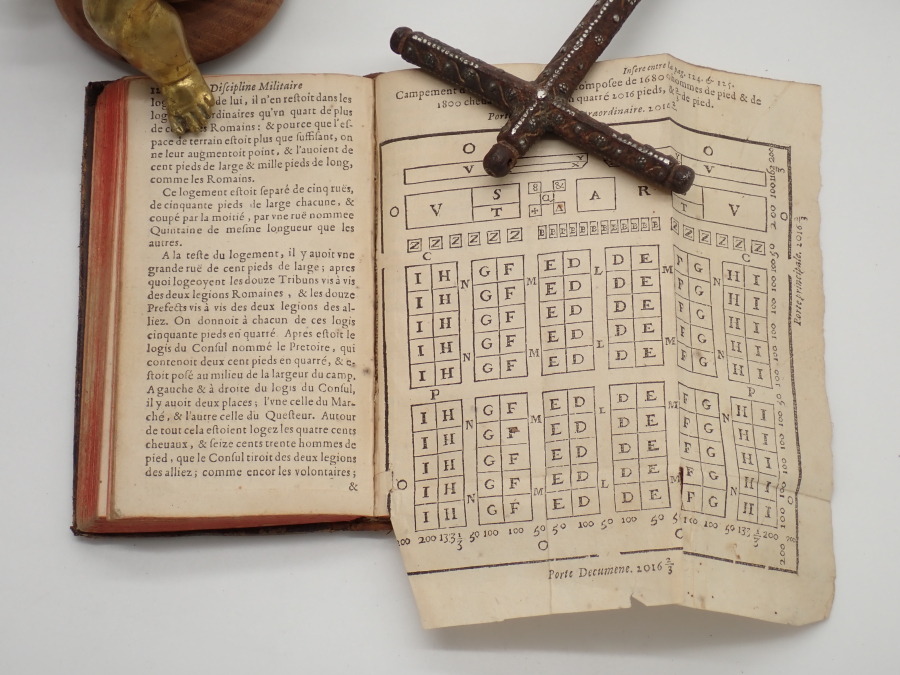 Discipline Militaire
de lui, il n'en reſtoit dans les
qu'vn quart de plus
Romains : & pource que l'eſ-
pace de terrain eſtoit plus que ſuffiſant, on
ne leur augmentoit point, & l'auoient de
cent pieds de large & mille pieds de long,
comme les Romains.
Ce logement eſtoit ſeparé de cinq ruës,
de cinquante pieds de large chacune, &
coupé par la moitié, par vne ruë nommee
Quintaine de meſme longueur que les
autres.
A la teſte du logement, il y auoit vne
grande ruë de cent pieds de large; apres
quoi logeoyent les douze Tribuns vis à vis
des deux legions Romaines, & les douze
Prefects vis à vis des deux legions des al-
liez. On donnoit à chacun de ces logis
cinquante pieds en quarré. Après eſtoit le
logis du Conſul nommé le Pretoire, qui
contenoit deux cent pieds en quarré, & e-
ſtoit poſé au milieu de la largeur du camp.
A gauche & à droite du logis du Conſul,
il y auoit deux places; l'vne celle du Mar-
ché, & l'autre celle du Queſteur. Autour
de tout cela eſtoient logez les quatre cents
cheuaux, & ſeize cents trente hommes de
pied, que le Conſul tiroit des deux legions
des alliez; comme encor les volontaires;
&
Inſere entre la pag. 124. & 125.
Campement compoſee de 1680 hommes de pied & de
1800 quarré 2016 pieds, & 2/3 de pied.
Porte extraordinaire. 2016
O O
V V
V S T A R T V
O O
N N N N N N E E E E E E E E E E E E N N N N N N
C C
I H N G F M E D L D E M F G N H I
I H G F E D D E F G H I
I H G F E D D E F G H I
I H N G F M E D L D E M F G N H I
I H G F E D D E F G H I
P P
I H N G F M E D L D E M F G N H I
I H G F E D D E F G H I
I H G F E D D E F G H I
I H N G F M E D L D E M F G N H I
I H G F E D D E F G H I
O O
100 200 133 1/3 50 100 100 50 50 100 100 50 100 100 50 100 100 50 133 1/3 200
O
Porte Decumene. 2016 2/3
Porte principale. 2016 2/3